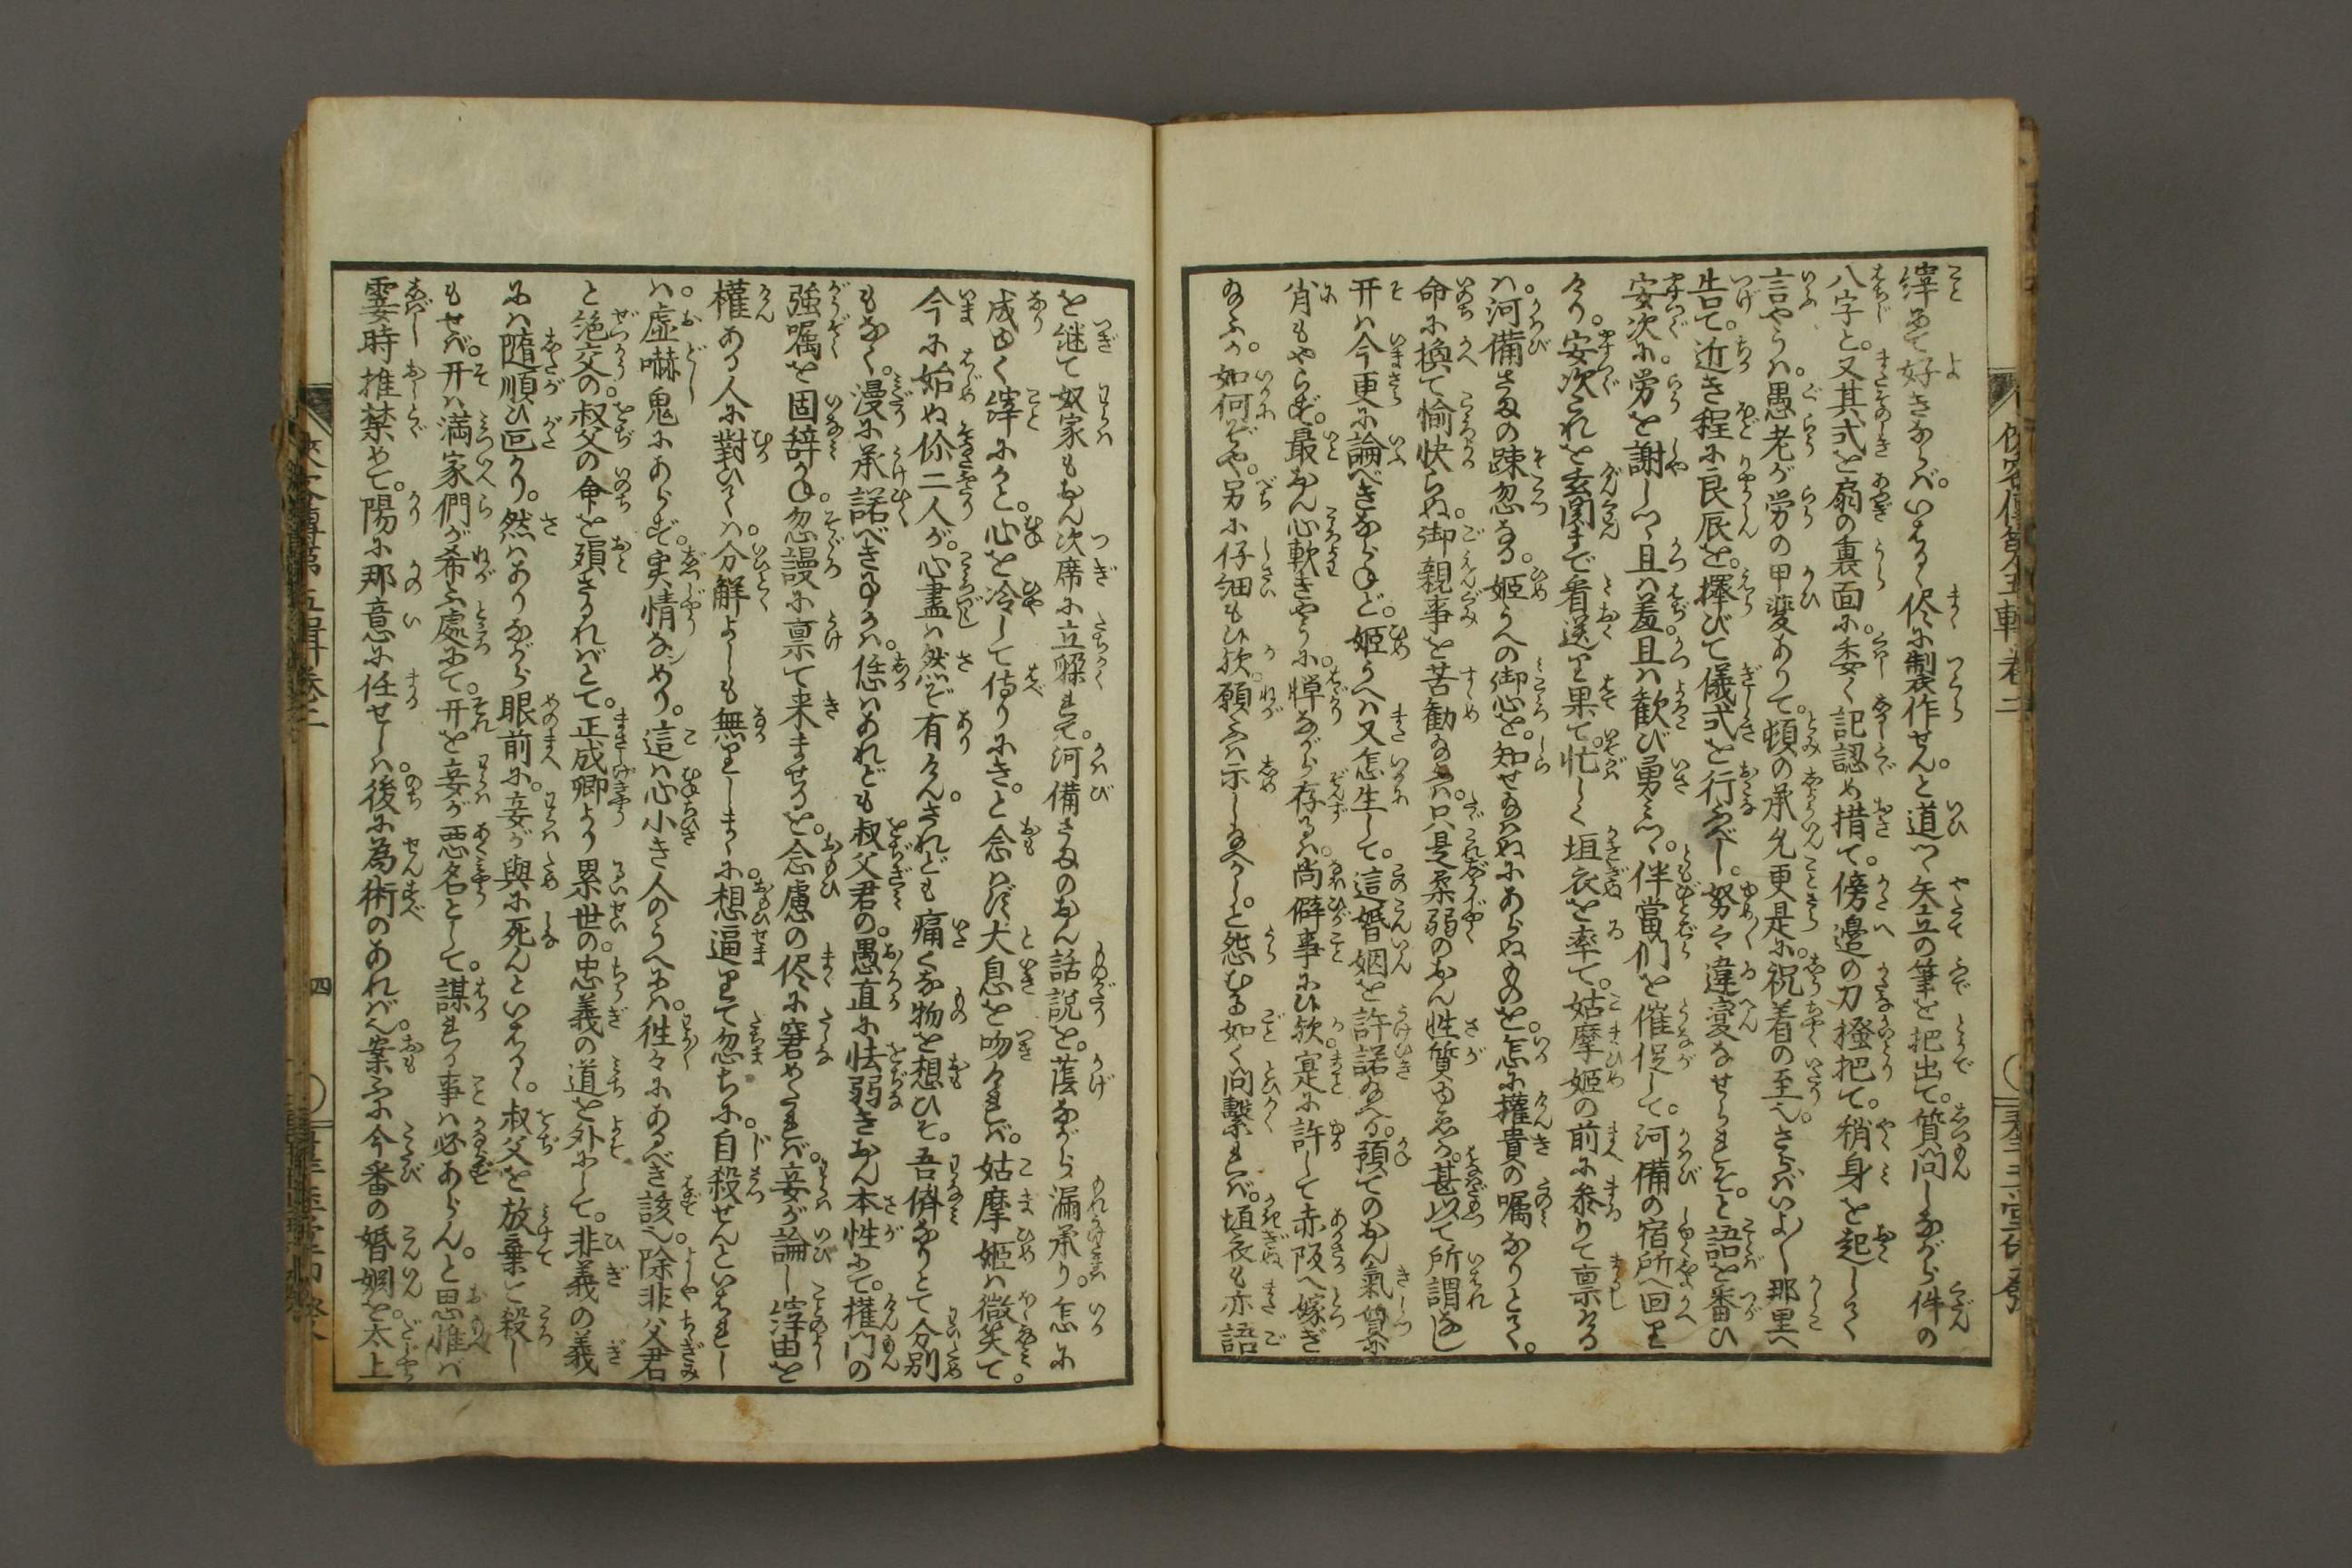 縡あて好きならバ。いはるゝ侭に制衣作せん。と道つゝ矢立の筆を把出て。質問しながら件の
八字と。又其式を扇の裏面に。委く記認め措て。傍邉の刀掻把て。稍身を起しつゝ
言やうハ。愚老が労の甲斐ありて。頓の承允更是に。祝着の至へ。さらバいよ〳〵那里へ
告て。近き程に良辰を。擇びて儀式を行ふべし。努々違変なせられそ。と語を番ひ
安次に。労を謝しつゝ且ハ羞。且ハ歓び勇つゝ。伴當們を催促して。河備の宿所へ回里
けり。安次これを玄関まで看送り果て。忙しく垣衣を率て。姑摩姫の前に参りて禀するハ
ハ。河備さまの踈忽なる。姫うへの御心を。知せ給ハぬにあらぬものを。怎に権貴の嘱なりとて。
命に換て愉快らぬ。御親事を苦勧給ふハ。只是柔弱のおん性質ゆゑ。甚以て所謂なし
开ハ今更に論べきならねど。姫うへハ又怎生して。這婚姻を許諾給へる。預てのおん氣質に
肖もやらず。最おん心軟きやうに。憚ながら存るハ。尚僻事に欤。寔に許して赤阪へ嫁ぎ
給ふか。如何ぞや。另に仔細もひ欤。願ふハ示し給へかし。と怨むる如く問繫れバ。垣衣も亦語
を継て奴家もおん次席に立躱れて。河備さまのおん話説を。蔭ながら漏承り。怎に
成ゆく縡にかと。心を冷して侍りにき。と念ハず大息を吻けれバ。姑摩姫ハ微笑て。
今に始ぬ伱二人が。心盡ハ然ぞ有けん。されども痛くな物を想ひそ。吾儕なりとて分別
もなく。漫に承諾べき事かハ。恁ハあれども叔父君の。愚直に怯弱きおん本性にて。権門の
強嘱を固辞かね。忽謾に禀て来ませるを。念慮の侭に窘めたれバ。妾が論し縡由を
權ある人に對ひてハ。分觧よしも無りしまゝに。想逼りて忽ちに。自殺せんといはれし
ハ。虚嚇鬼にあらず。実情なめり。這ハ心小き人のうへにハ。徃々にあるべき該へ。除非父君
と絶交の。叔父の命を殞さるれバとて。正成卿より累世の。忠義の道を外にして。非義の義
にハ隨順ひ叵かり。然ハありながら眼前に。妾が與に死んといはるゝ。叔父を放棄と殺し
もせバ。开ハ満家們が希ふ處にて。开を妾が悪名として。謀るゝ事ハ必あらん。と思惟バ
霎時推禁めて。陽に那意に任せしハ。後に為術のあれバへ。案ふに今番の婚姻を。太上
四